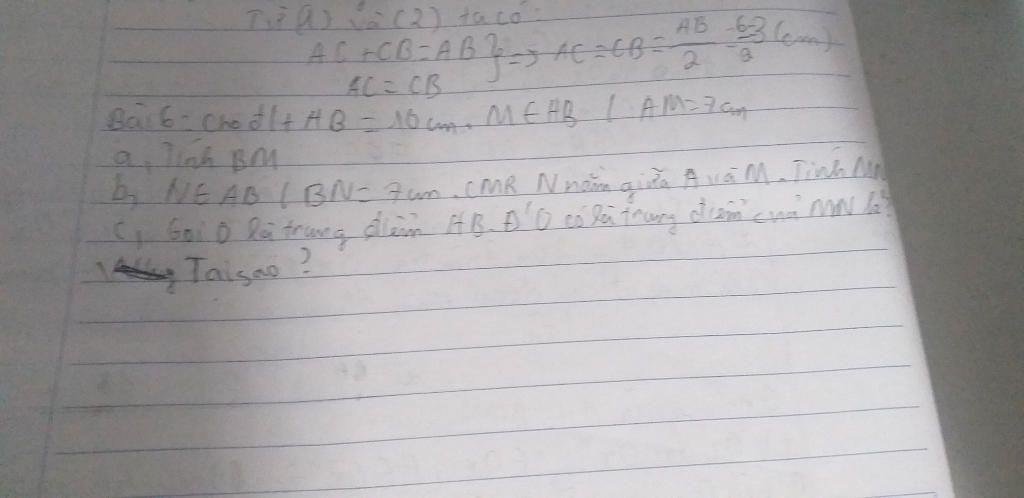 Từ (1) và (2) ta có:
AC + CB = AB } => AC = CB = AB/2 = 6/2 = 3 (cm)
AC = CB
Bài 6: Cho đ/t AB = 10 cm. M ∈ AB / AM = 7 cm
a, Tính BM
b, N ∈ AB / BN = 7 cm. CMR N nằm giữa A và M. Tính MN
c, Gọi O là trung điểm AB. Đ' O có là trung điểm của MN k?
Tại sao?